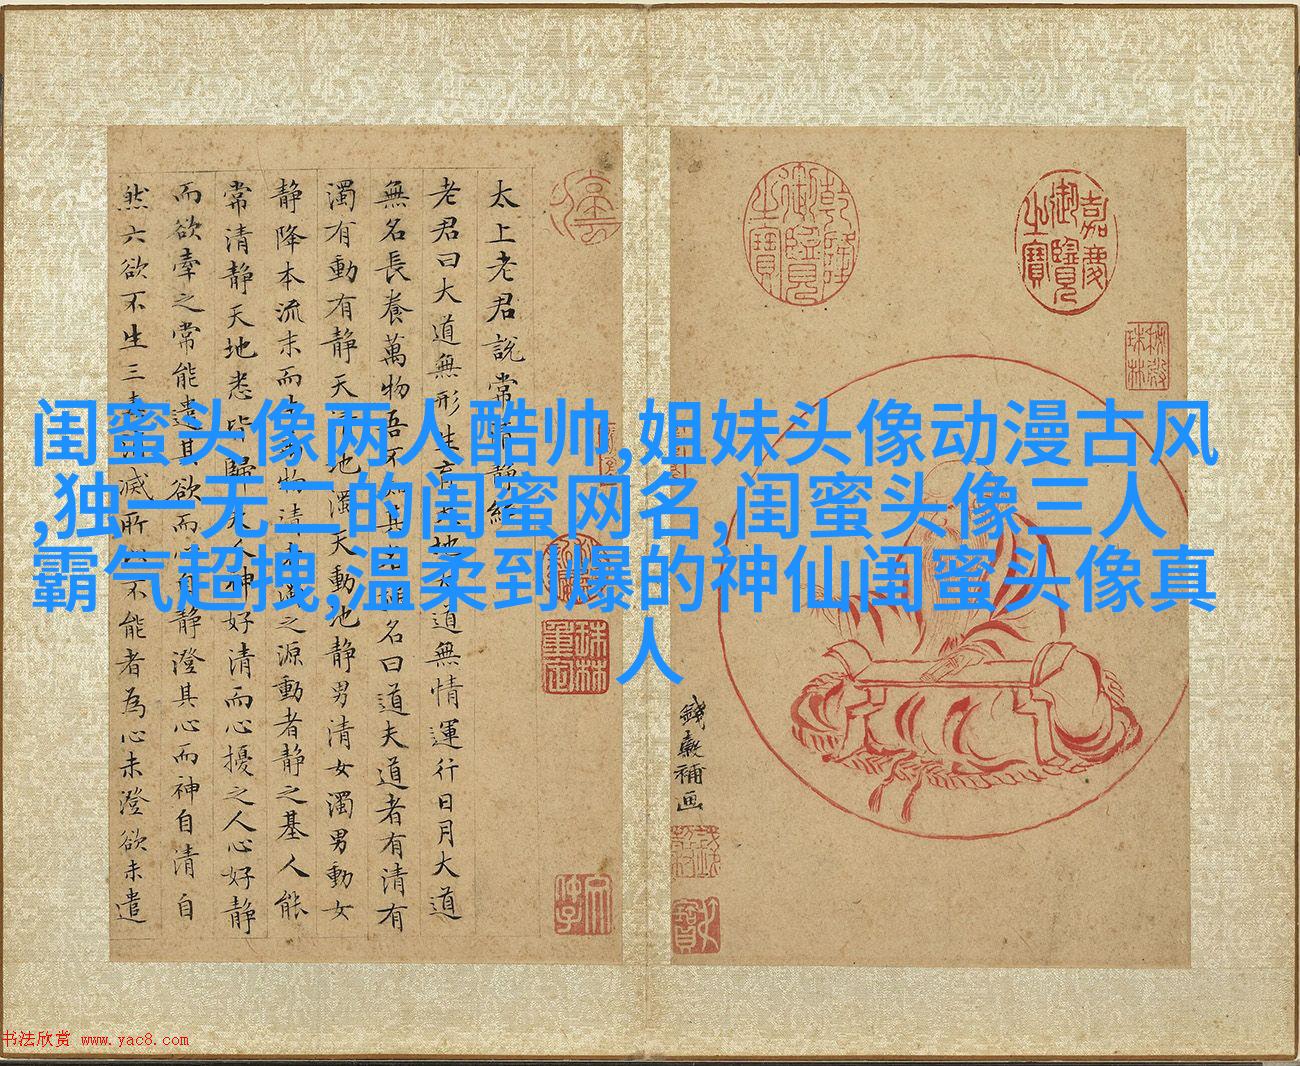 闺蜜头像两人酷帅,姐妹头像动漫古风
,独一无二的闺蜜网名,闺蜜头像三人
霸气超拽,温柔到爆的神仙闺蜜头像真
人
太上老君説常清静經
老君曰大道無形生育天地大道無情運行日月大道
無名長養萬物吾不知其名强名曰道夫道者有清有
濁有動有静天清地濁天動地静男清女濁男動女
静降本流末而生萬物清者濁之源動者静之基人能
常清静天地悉皆歸夫人神好清而心擾之人心好静
而欲牽之常能遣其欲而心自静澄其心而神自清自
然六欲不生三毒消滅所以不能者為心未澄欲未遣
乾隆御覽之寶
嘉慶御覽之寶
錢穀補画
书法欣赏 www.yac8.com